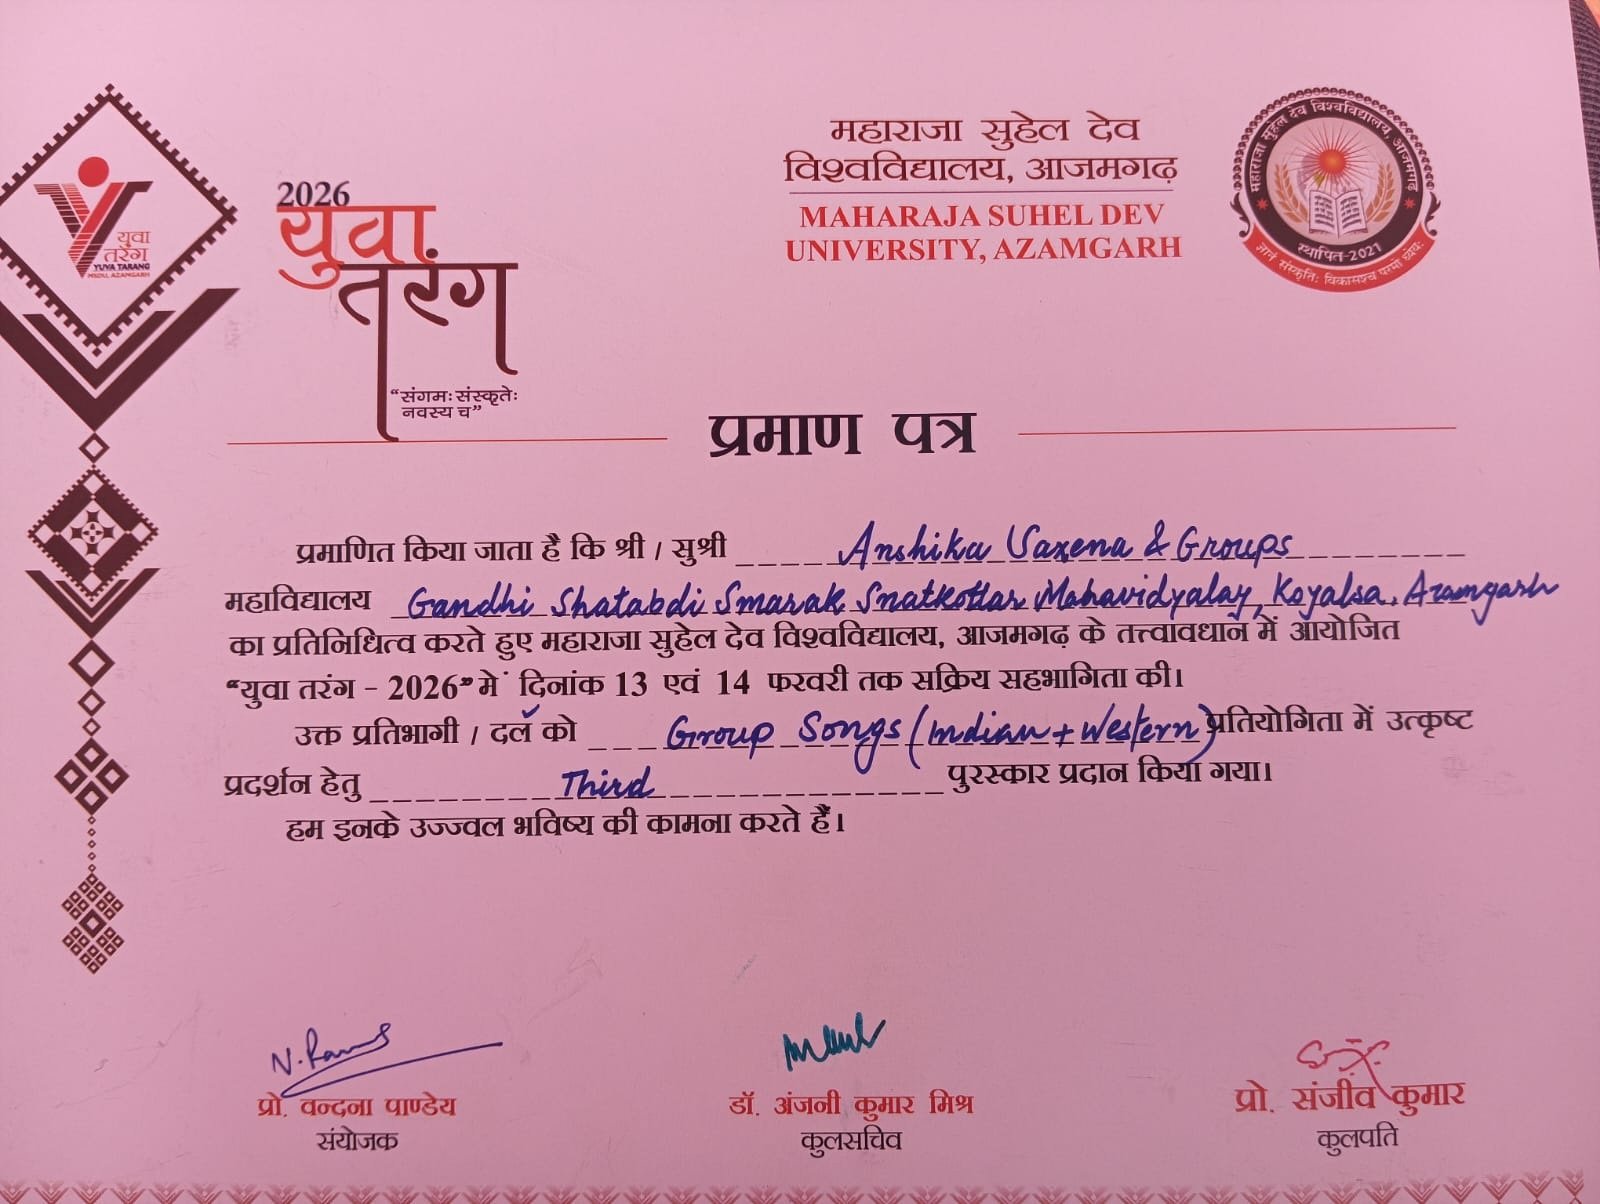 युवा
तरंग
YUVA TARANG
MSDU, AZAMGARH
2026
युवा
तरंग
“संगमः संस्कृतेः
नवस्य च”
महाराजा सुहेल देव
विश्वविद्यालय, आजमगढ़
MAHARAJA SUHEL DEV
UNIVERSITY, AZAMGARH
महाराजा सुहेल देव विश्वविद्यालय, आजमगढ़
स्थापित-2021
ज्ञानं संस्कृतिः विकासश्च परमो ध्येयः
प्रमाण पत्र
प्रमाणित किया जाता है कि श्री / सुश्री Anshika Saxena & Groups
महाविद्यालय Gandhi Shatabdi Smarak Snatkottar Mahavidyalay, Koyalsa, Azamgarh
का प्रतिनिधित्व करते हुए महाराजा सुहेल देव विश्वविद्यालय, आजमगढ़ के तत्त्वावधान में आयोजित
“युवा तरंग - 2026” में दिनांक 13 एवं 14 फरवरी तक सक्रिय सहभागिता की।
उक्त प्रतिभागी / दल को Group Songs (Indian + Western) प्रतियोगिता में उत्कृष्ट
प्रदर्शन हेतु Third पुरस्कार प्रदान किया गया।
हम इनके उज्ज्वल भविष्य की कामना करते हैं।
प्रो. वन्दना पाण्डेय
संयोजक
डॉ. अंजनी कुमार मिश्र
कुलसचिव
प्रो. संजीव कुमार
कुलपति